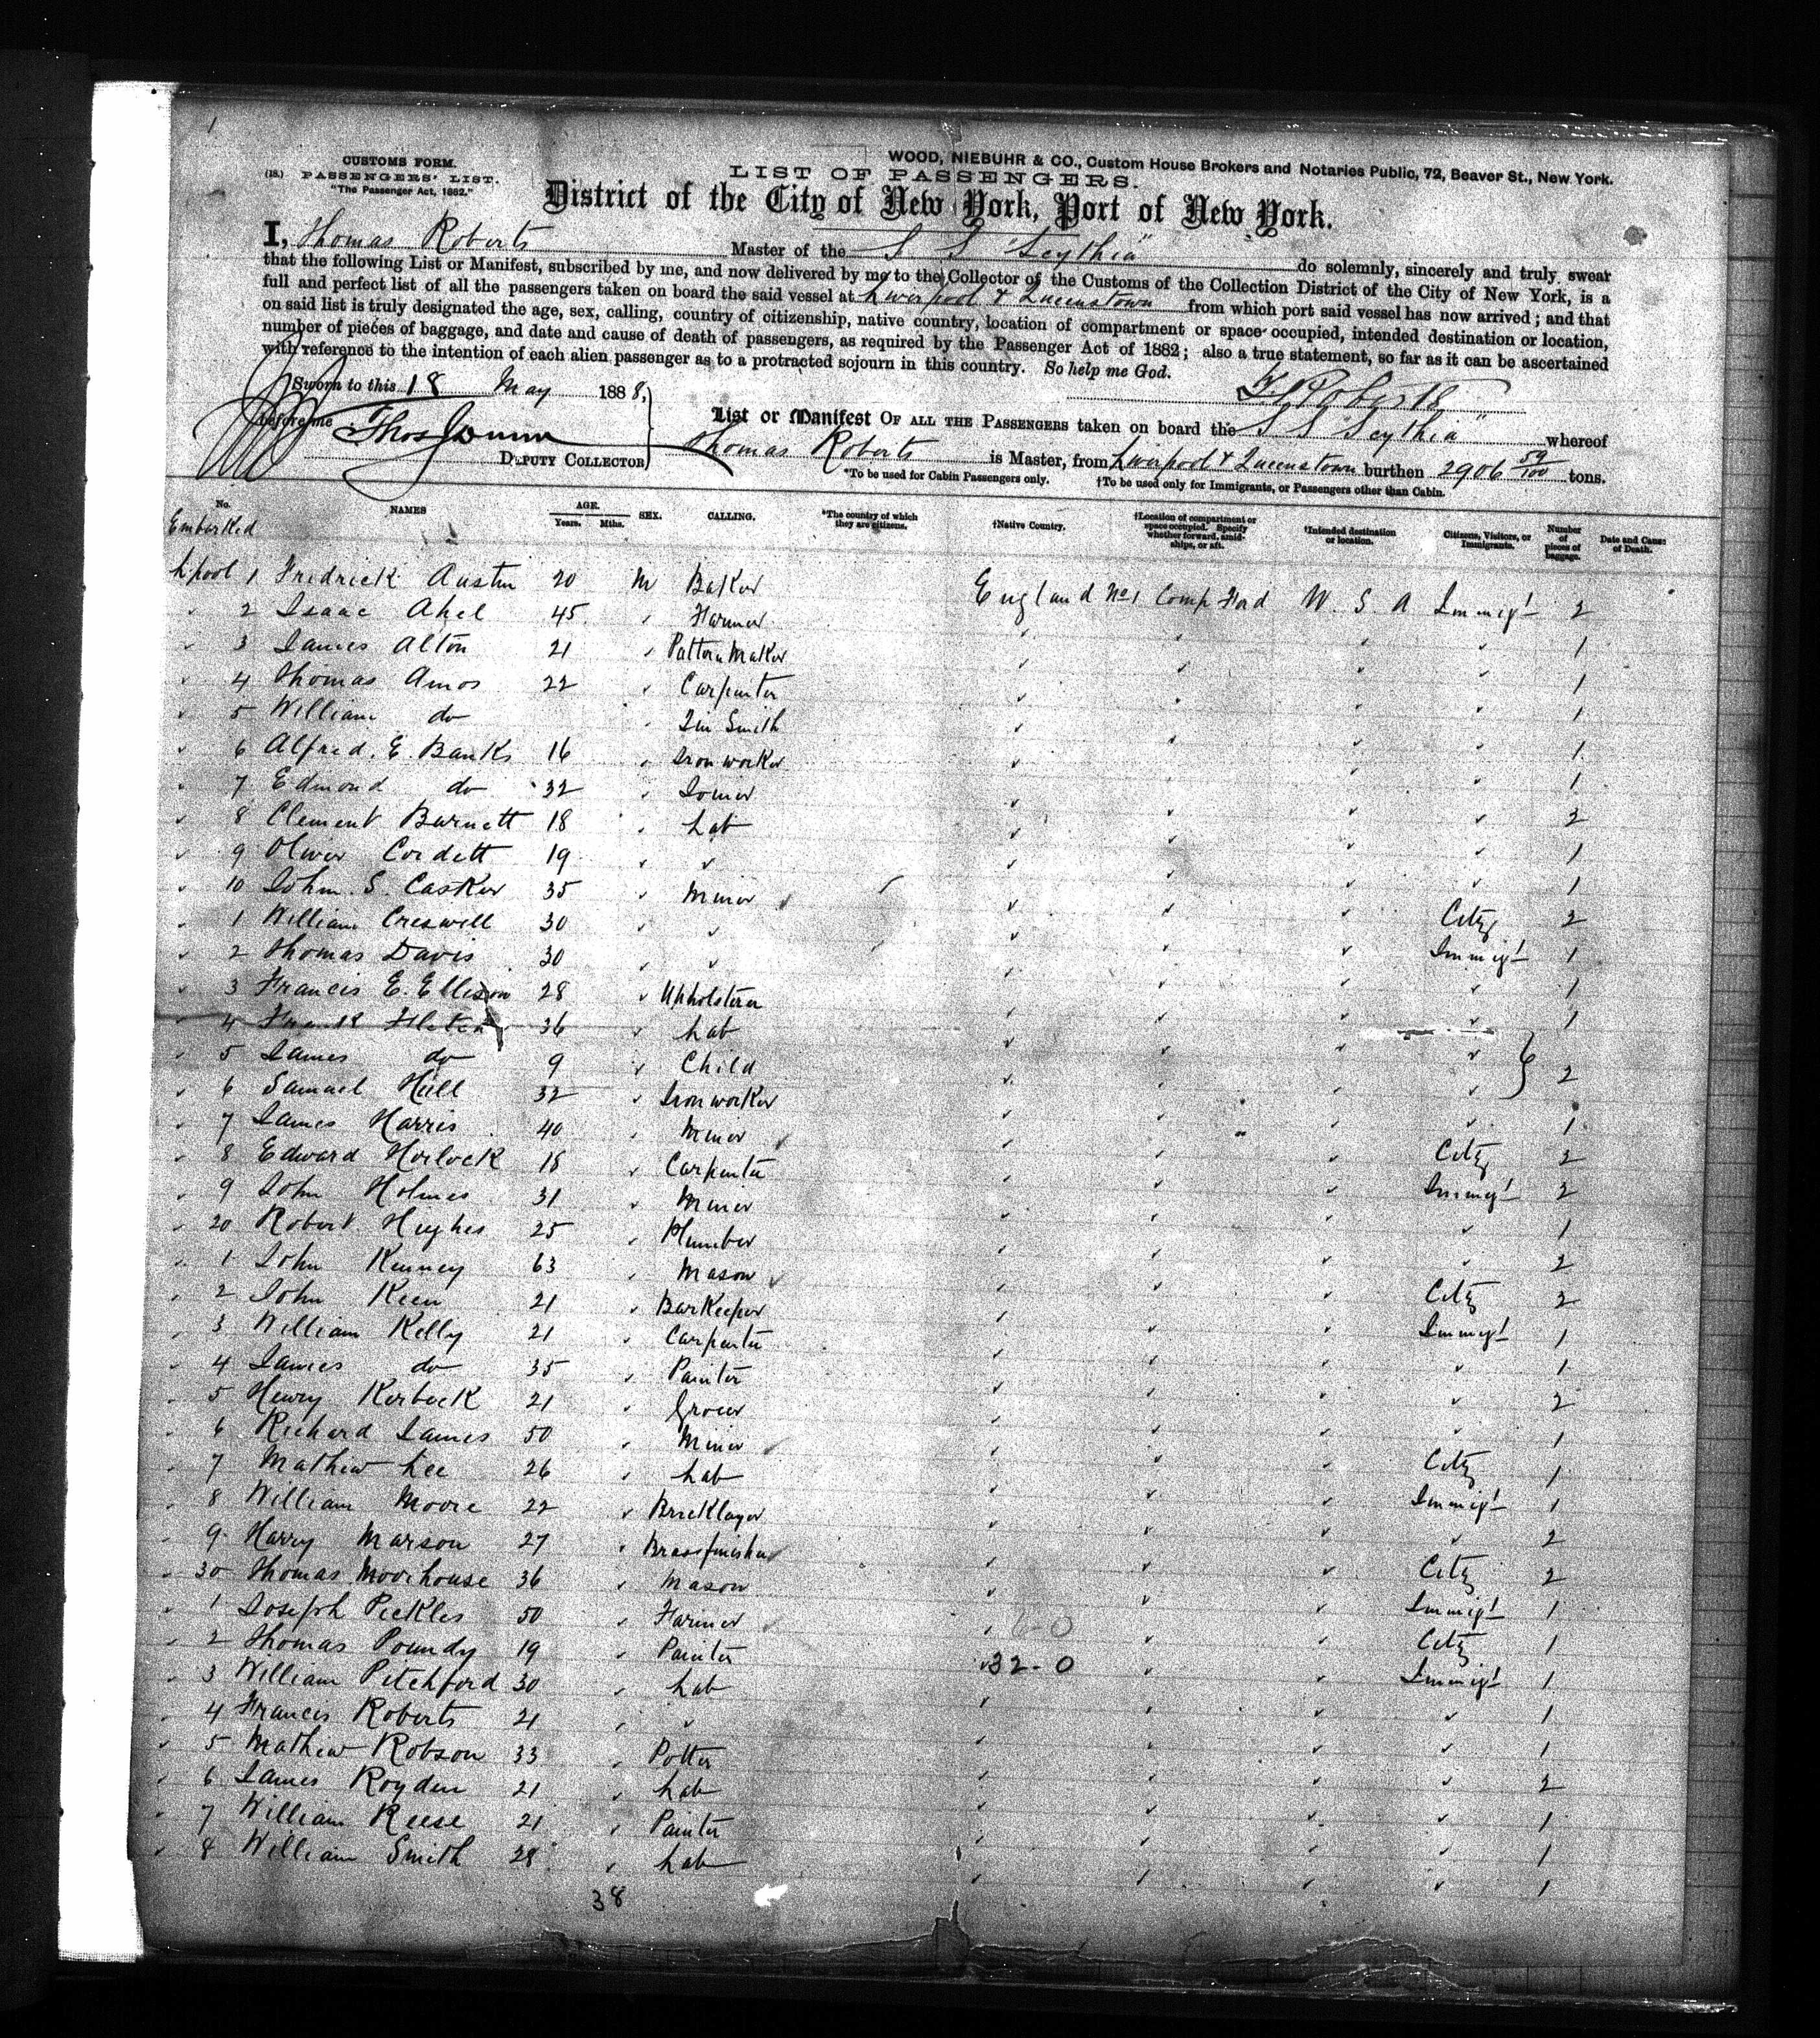 1
CUSTOMS FORM.
(18.) PASSENGERS' LIST.
"The Passenger Act, 1882."
WOOD, NIEBUHR & CO., Custom House Brokers and Notaries Public, 72, Beaver St., New York.
LIST OF PASSENGERS.
District of the City of New York, Port of New York.
I, Thomas Roberts Master of the S S "Scythia" do solemnly, sincerely and truly swear
that the following List or Manifest, subscribed by me, and now delivered by me to the Collector of the Customs of the Collection District of the City of New York, is a
full and perfect list of all the passengers taken on board the said vessel at Liverpool & Queenstown from which port said vessel has now arrived; and that
on said list is truly designated the age, sex, calling, country of citizenship, native country, location of compartment or space occupied, intended destination or location,
number of pieces of baggage, and date and cause of death of passengers, as required by the Passenger Act of 1882; also a true statement, so far as it can be ascertained
with reference to the intention of each alien passenger as to a protracted sojourn in this country. So help me God.
Sworn to this 18 May 1888,
T Roberts
before me Thos
DEPUTY COLLECTOR
List or Manifest OF ALL THE PASSENGERS taken on board the S S "Scythia" whereof
Thomas Roberts is Master, from Liverpool & Queenstown burthen 2906 59/100 tons.
*To be used for Cabin Passengers only. †To be used only for Immigrants, or Passengers other than Cabin.
No. NAMES AGE. Years. Mths. SEX. CALLING. *The country of which they are citizens. †Native Country. †Location of compartment or space occupied. Specify whether forward, amidships, or aft. †Intended destination or location. Citizens, Visitors, or Immigrants. Number of pieces of baggage. Date and Cause of Death.
Embarked
Lpool 1 Fredrick Austin 20 M Baker England No 1 Comp Fwd U. S. A Immigt 2
2 Isaac Abel 45 Farmer 1
3 James Alton 21 Pattern Maker 1
4 Thomas Amos 22 Carpenter 1
5 William do Tin Smith 1
6 Alfred. E. Banks 16 Iron worker 1
7 Edmond do 32 Joiner 2
8 Clement Burnett 18 Lab 1
9 Oliver Cordett 19 1
10 John. S. Casker 35 Miner City 2
1 William Creswell 30 Immigt 1
2 Thomas Davis 30 1
3 Francis E. Ellison 28 Upholsterer 1
4 Frank 36 Lab
5 James do 9 Child } 2
6 Samuel Hill 32 Iron worker 1
7 James Harris 40 Miner City 2
8 Edward Horlock 18 Carpenter Immigt 2
9 John Holmes 31 Miner 1
20 Robert Hughes 25 Plumber 2
1 John Kenney 63 Mason City 2
2 John Keen 21 Barkeeper Immigt 1
3 William Kelly 21 Carpenter 1
4 James do 35 Painter 2
5 Henry Kerbeck 21 Grocer 1
6 Richard James 50 Miner City 1
7 Mathew Lee 26 Lab Immigt 1
8 William Moore 22 Bricklayer 2
9 Harry Marson 27 Brassfinisher City 2
30 Thomas Moorhouse 36 Mason Immigt 1
1 Joseph Pickles 50 Farmer 6-0 City 1
2 Thomas Poundy 19 Painter 32-0 Immigt 1
3 William Pitchford 30 Lab 1
4 Francis Roberts 21 1
5 Mathew Robson 33 Potter 2
6 James Royden 21 Lab 1
7 William Reese 21 Painter 1
8 William Smith 28 Lab 1
38